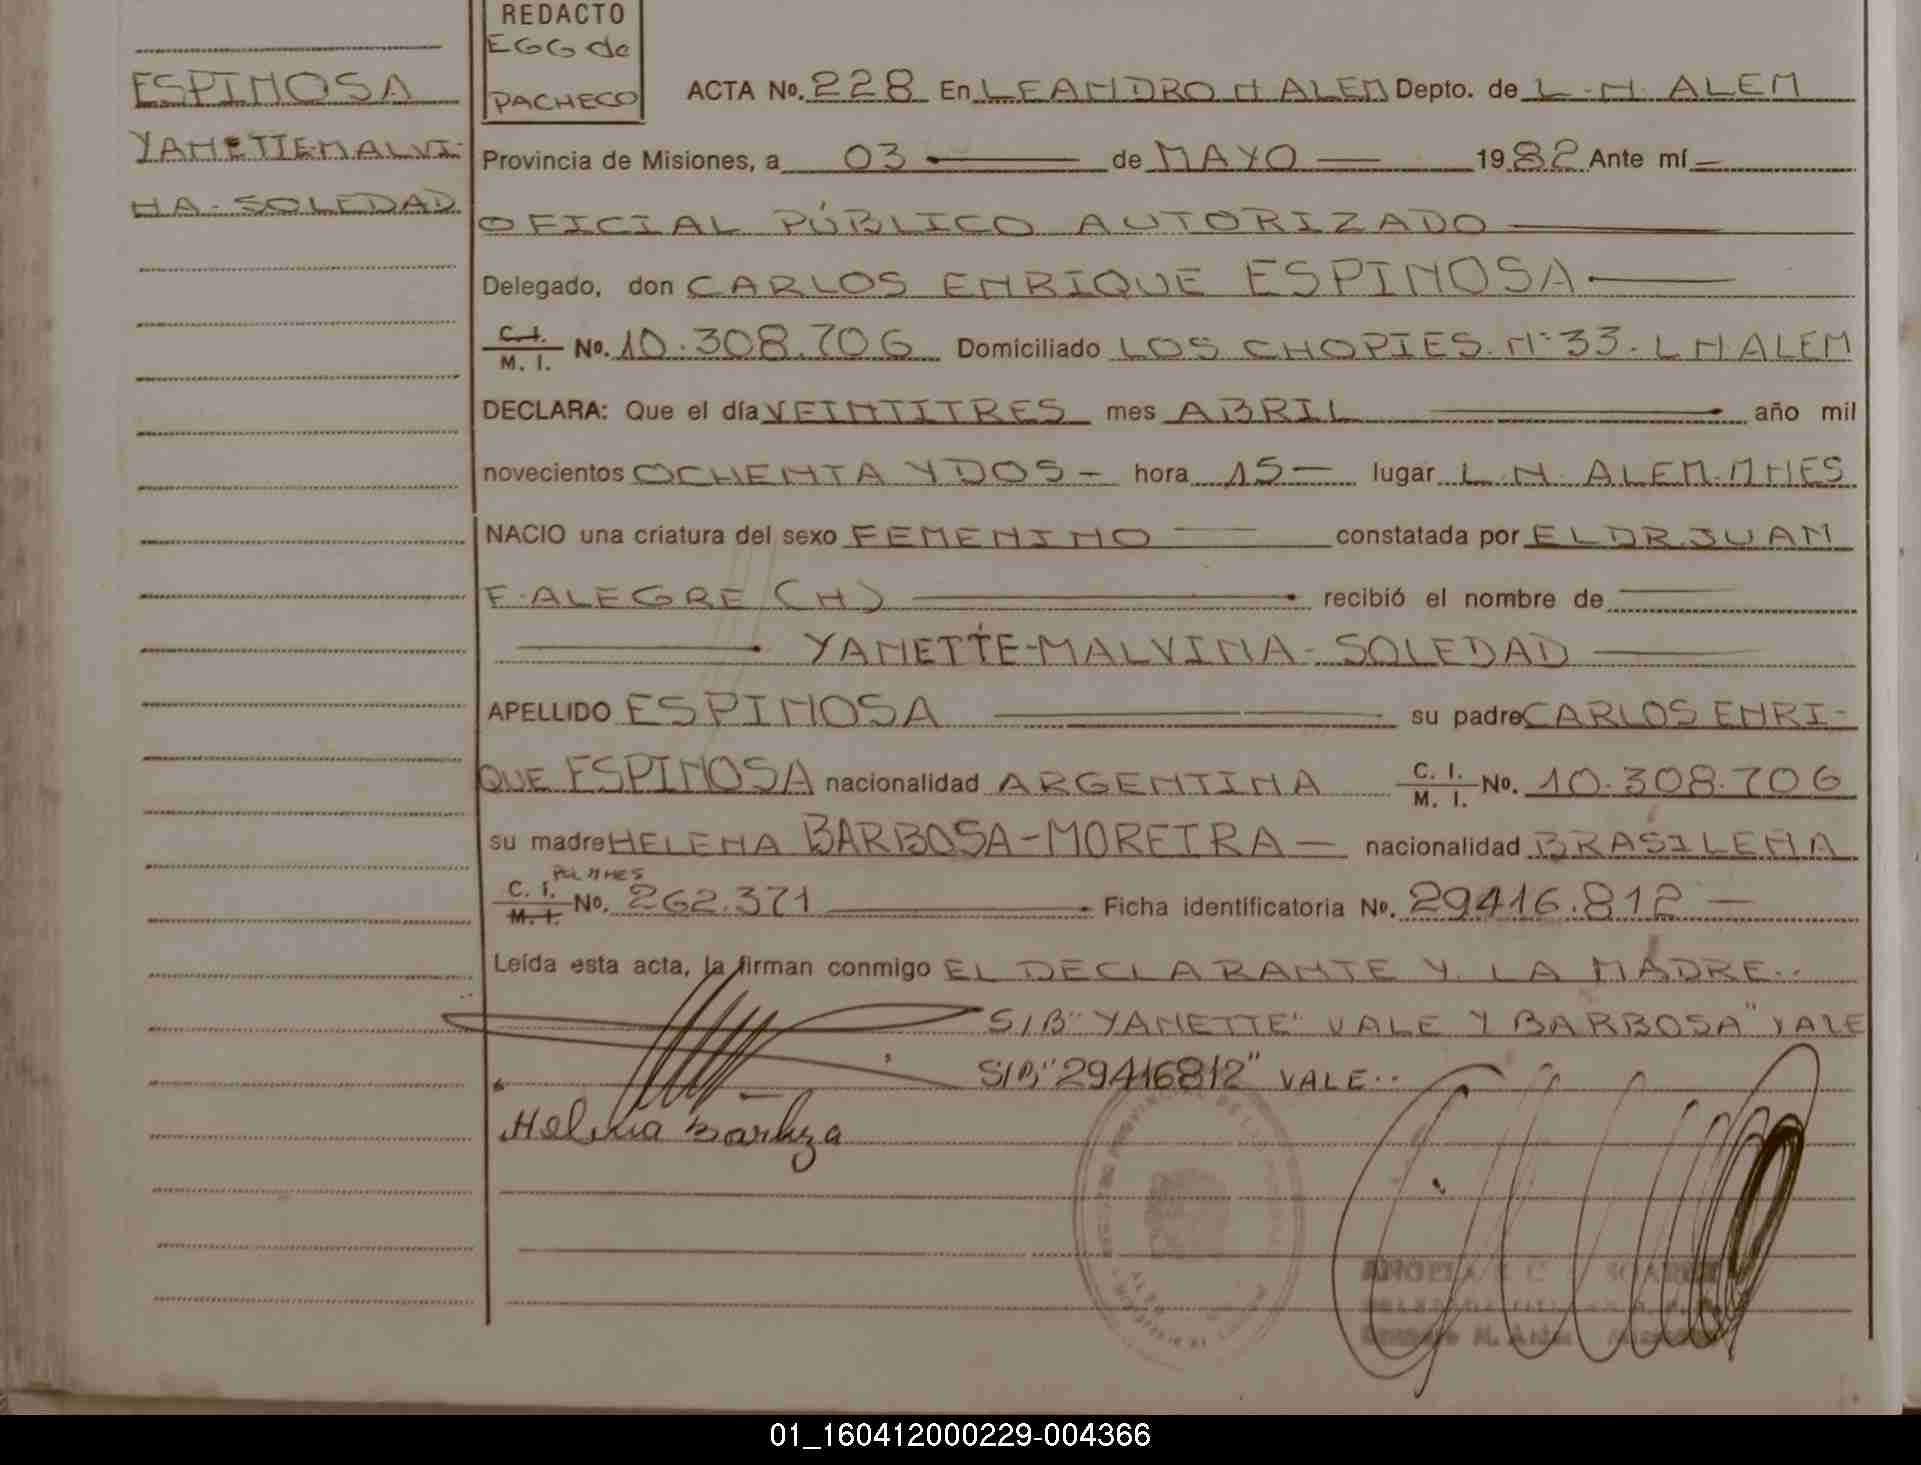 REDACTO
EGG de
PACHECO
ESPINOSA
YANETTE-MALVI-
NA-SOLEDAD
ACTA No. 228 En LEANDRO N ALEM Depto. de L.N. ALEM
Provincia de Misiones, a 03 de MAYO 1982 Ante mí
OFICIAL PÚBLICO AUTORIZADO
Delegado, don CARLOS ENRIQUE ESPINOSA
C. I. M. I. No. 10.308.706 Domiciliado LOS CHOPIES. N° 33. L N ALEM
DECLARA: Que el día VEINTITRES mes ABRIL año mil
novecientos OCHENTA Y DOS - hora 15 - lugar L.N. ALEM. MNES
NACIO una criatura del sexo FEMENINO constatada por EL DR. JUAN
F. ALEGRE (H) recibió el nombre de
YANETTE-MALVINA-SOLEDAD
APELLIDO ESPINOSA su padre CARLOS ENRI-
QUE ESPINOSA nacionalidad ARGENTINA C. I. M. I. No. 10.308.706
su madre HELENA BARBOSA-MOREIRA - nacionalidad BRASILEÑA
POL MNES
C. I. M. I. No. 262.371 Ficha identificatoria No. 29416.812 -
Leída esta acta, la firman conmigo EL DECLARANTE Y LA MADRE..
S/B "YANETTE" VALE Y BARBOSA" VALE
S/B "29416812" VALE..
Helena
01_160412000229-004366